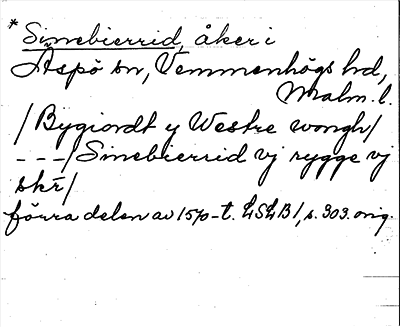 * Simebierrid, åker i
Äspö sn, Vemmenhögs hd,
Malm. l.
/Bygiordt y Westre wongh/
---/Simebierrid vj rygge vj
skr̄/
förra delen av 1570-t. LSLB 1, s. 303. orig.